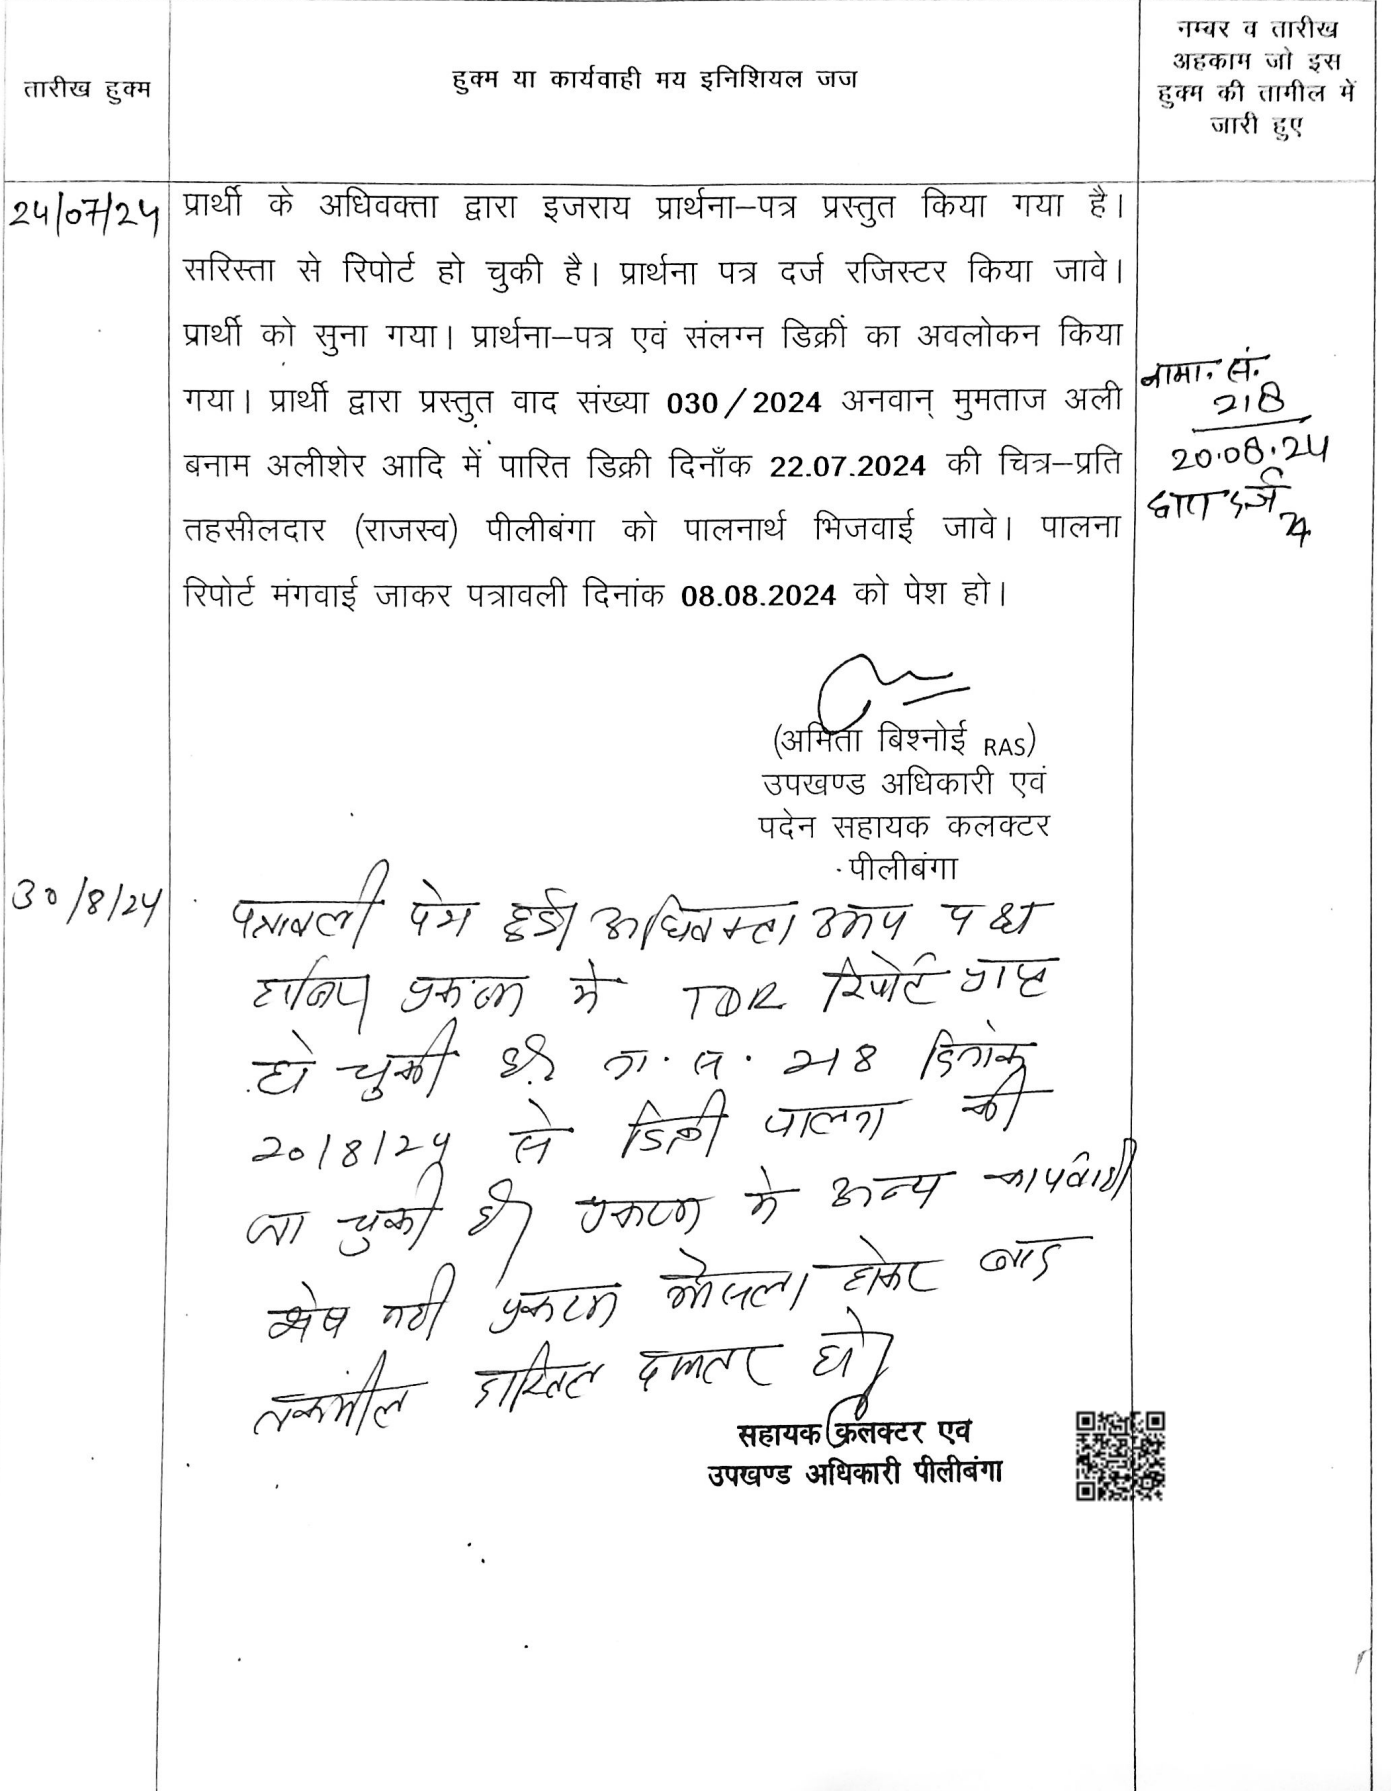 तारीख हुक्म
हुक्म या कार्यवाही मय इनिशियल जज
नम्बर व तारीख
अहकाम जो इस
हुक्म की तामील में
जारी हुए
24/07/24
प्रार्थी के अधिवक्ता द्वारा इजराय प्रार्थना–पत्र प्रस्तुत किया गया है।
सरिस्ता से रिपोर्ट हो चुकी है। प्रार्थना पत्र दर्ज रजिस्टर किया जावे।
प्रार्थी को सुना गया। प्रार्थना–पत्र एवं संलग्न डिक्री का अवलोकन किया
गया। प्रार्थी द्वारा प्रस्तुत वाद संख्या 030/2024 अनवान् मुमताज अली
बनाम अलीशेर आदि में पारित डिक्री दिनाँक 22.07.2024 की चित्र–प्रति
तहसीलदार (राजस्व) पीलीबंगा को पालनार्थ भिजवाई जावे। पालना
रिपोर्ट मंगवाई जाकर पत्रावली दिनांक 08.08.2024 को पेश हो।
नामा. सं.
218
20.08.24
द्वारा दर्ज
(अमिता बिश्नोई RAS)
उपखण्ड अधिकारी एवं
पदेन सहायक कलक्टर
पीलीबंगा
30/8/24
पत्रावली पेश हुई। अधिवक्ता उभय पक्ष
हाजिर। प्रकरण मे TDR रिपोर्ट प्राप्त
हो चुकी है। ना. स. 218 दिनांक
20/8/24 से डिक्री पालना की
जा चुकी है। प्रकरण मे अन्य कार्यवाही
शेष नही प्रकरण फैसला होकर बाद
तकमील दाखिल दफ्तर हो।
सहायक कलक्टर एव
उपखण्ड अधिकारी पीलीबंगा